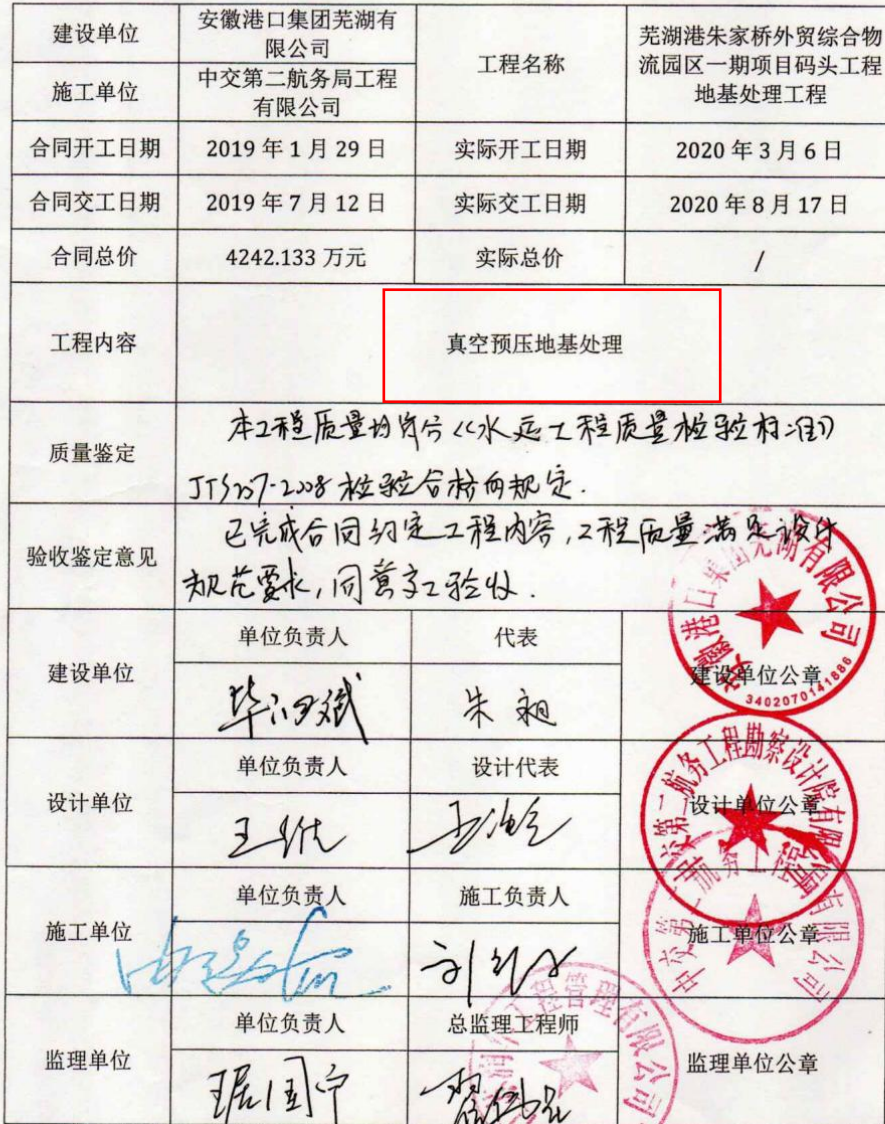 建设单位
安徽港口集团芜湖有
限公司
工程名称
芜湖港朱家桥外贸综合物
流园区一期项目码头工程
地基处理工程
施工单位
中交第二航务局工程
有限公司
合同开工日期
2019 年 1 月 29 日
实际开工日期
2020 年 3 月 6 日
合同交工日期
2019 年 7 月 12 日
实际交工日期
2020 年 8 月 17 日
合同总价
4242.133 万元
实际总价
/
工程内容
真空预压地基处理
质量鉴定
本工程质量均符合《水运工程质量检验标准》
JTS257-2008 检验合格的规定.
验收鉴定意见
已完成合同约定工程内容,工程质量满足设计
规范要求,同意交工验收.
建设单位
单位负责人
代表
朱
建设单位公章
安徽港口集团芜湖有限公司
3402070141886
设计单位
单位负责人
设计代表
王
王
设计单位公章
航务工程勘察设计院有限
施工单位
单位负责人
施工负责人
刘
施工单位公章
中交第二航务工程 有限公司
监理单位
单位负责人
总监理工程师
国宁
监理单位公章
工程管理有限公司